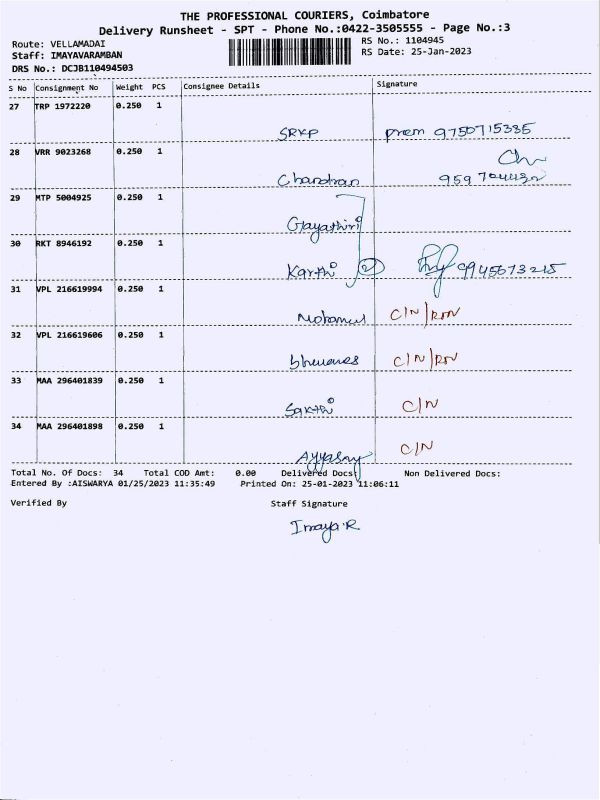 THE PROFESSIONAL COURIERS, Coimbatore
Delivery Runsheet - SPT - Phone No.:0422-3505555 - Page No.:3
Route: VELLAMADAI
Staff: IMAYAVARAMBAN
DRS No.: DCJB110494503
RS No.: 1104945
RS Date: 25-Jan-2023
S No Consignment No Weight PCS Consignee Details Signature
27 TRP 1972220 0.250 1
SRKP prem 9750715335
28 VRR 9023268 0.250 1
Chandran
29 MTP 5004925 0.250 1
Gayathiri
30 RKT 8946192 0.250 1
Karthi 2 9945673215
31 VPL 216619994 0.250 1
C/N/RTN
32 VPL 216619606 0.250 1
C/N/RTN
33 MAA 296401839 0.250 1
Sakthi C/N
34 MAA 296401898 0.250 1
C/N
Total No. Of Docs: 34 Total COD Amt: 0.00 Delivered Docs: Non Delivered Docs:
Entered By :AISWARYA 01/25/2023 11:35:49 Printed On: 25-01-2023 11:06:11
Verified By Staff Signature
Imaya.R